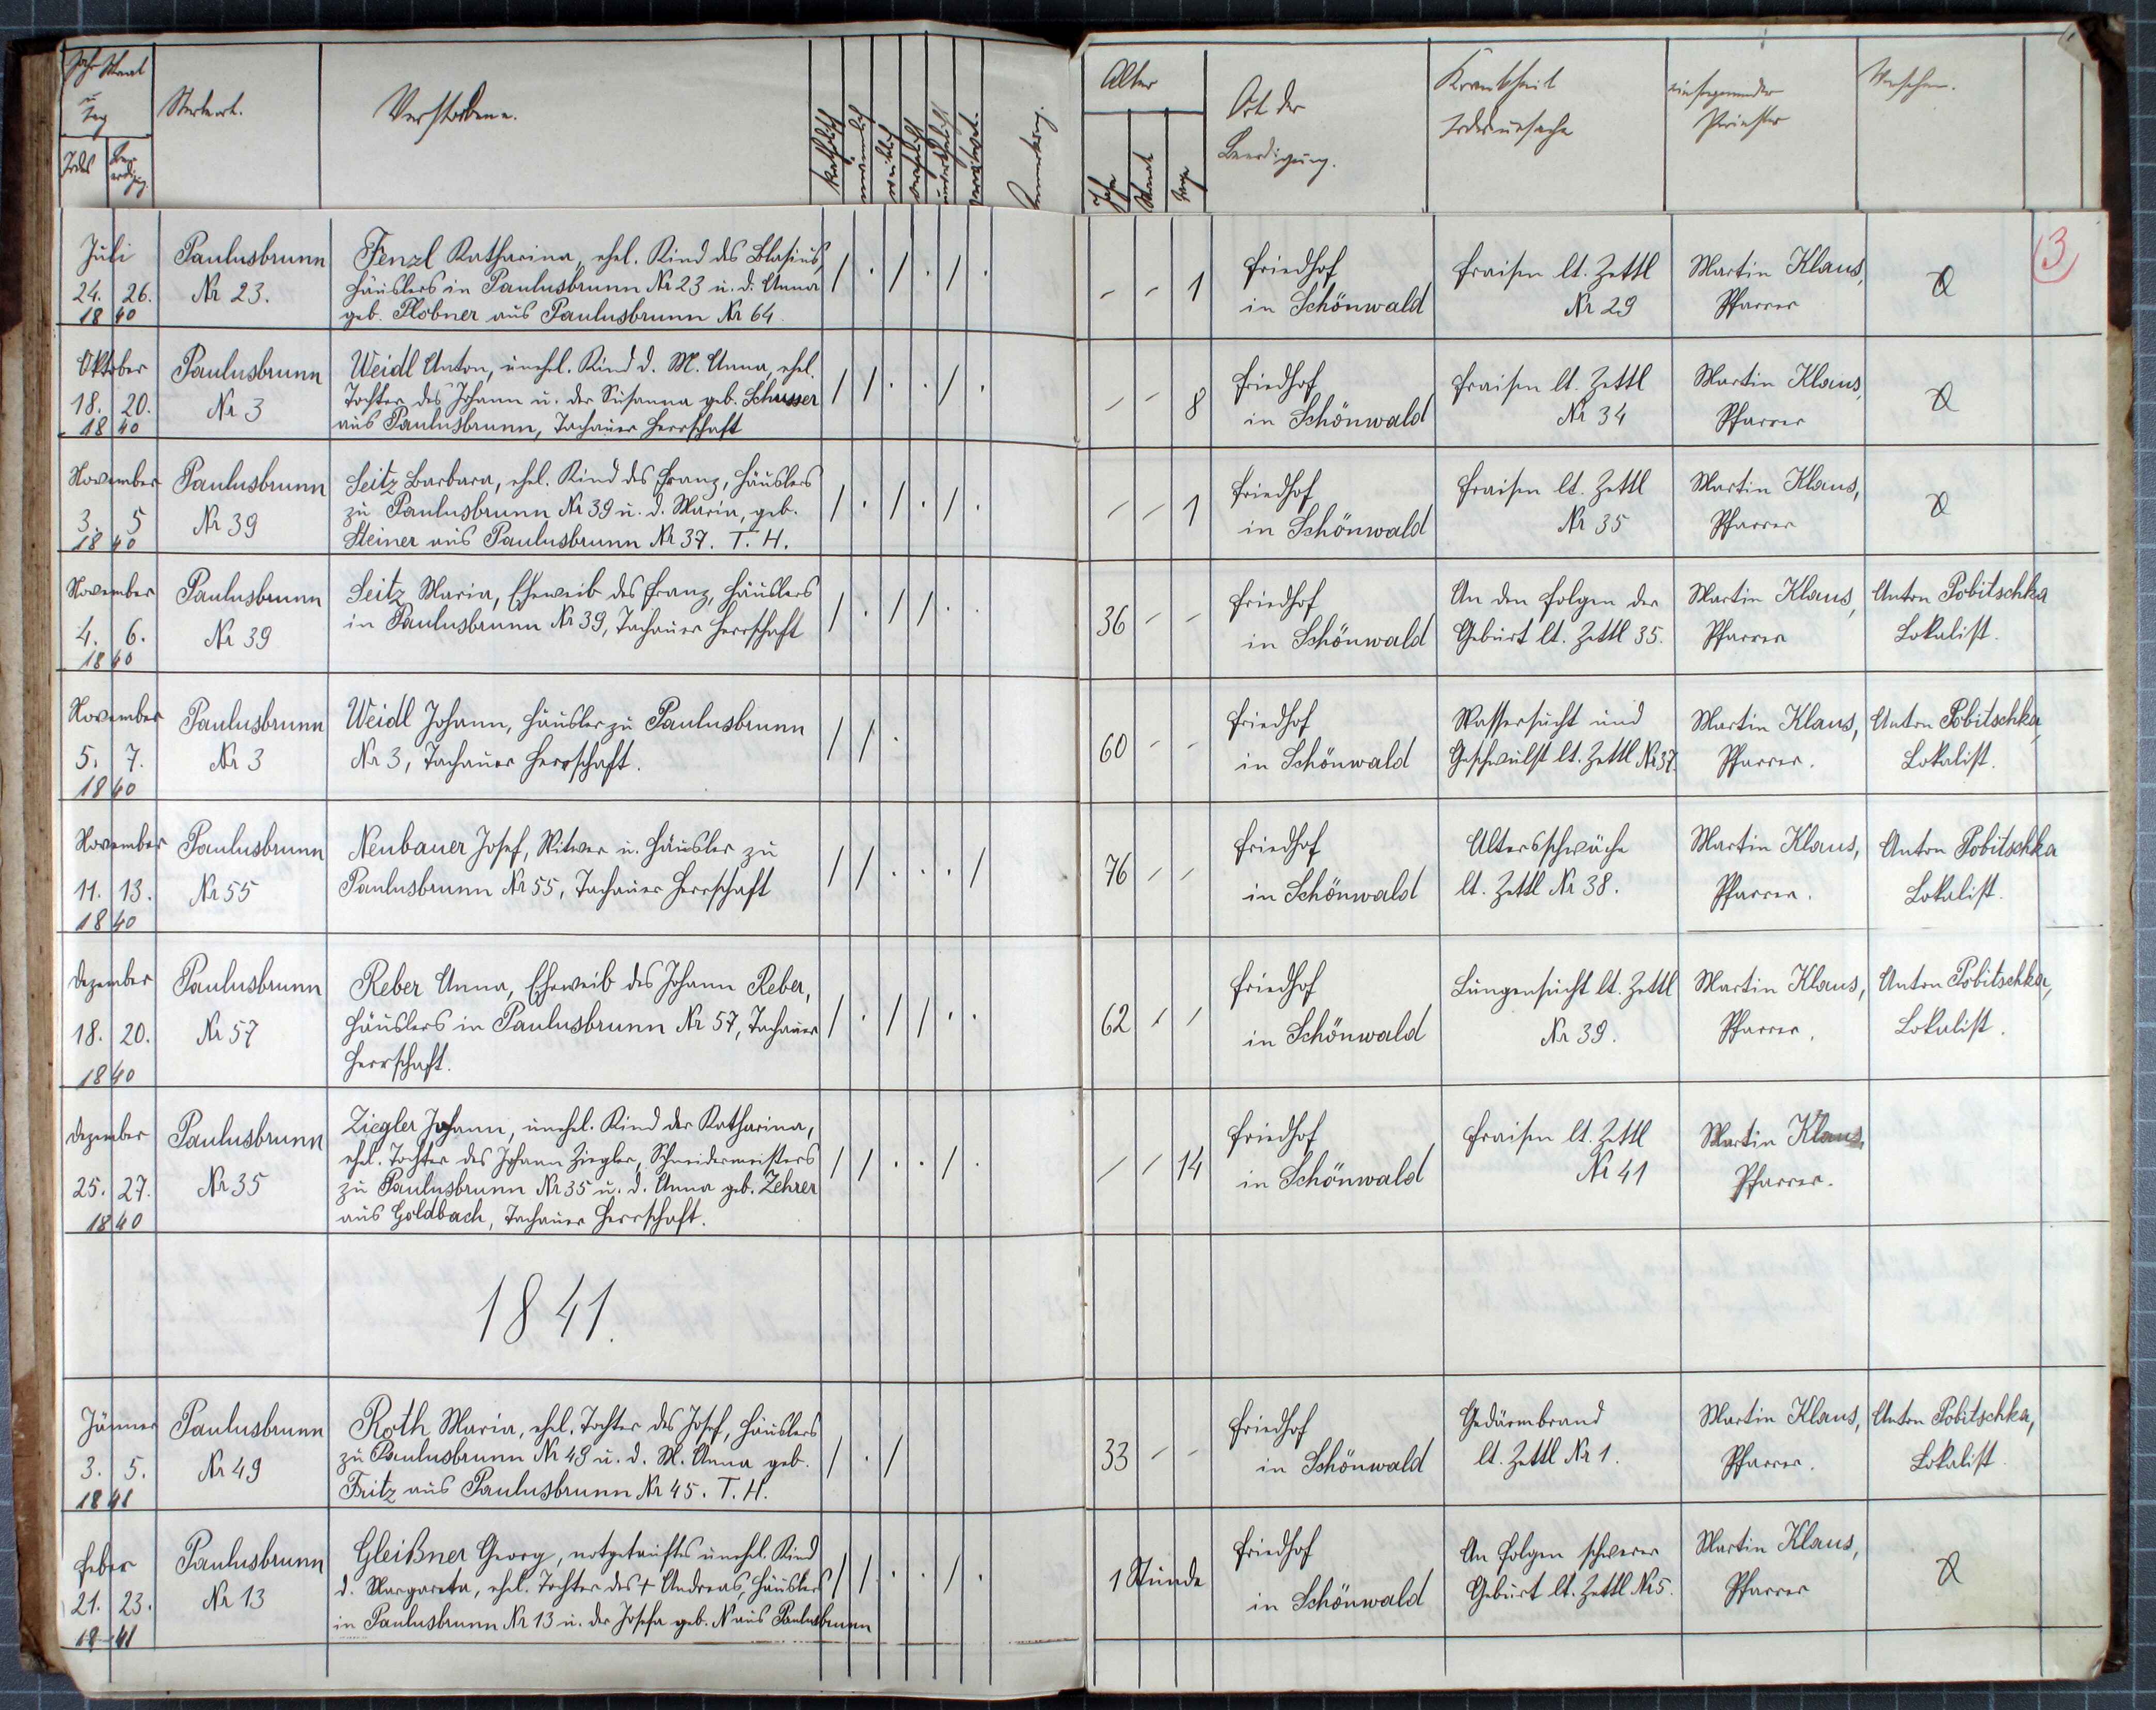 Jahr Monat
u
Tag
Todes
Beerdigung
Sterbeort.
Verstorbene.
katholisch
männlich
weiblich
ehelich
unehelich
verwitwet.
Anmerkung.
Alter
Jahr
Monat
Tage
Ort der
Beerdigung.
Krankheit
Todesursache
einsegnender
Priester
Versehen.
3
Juli
24. 26.
1840
Paulusbrunn
Nr 23.
Fenzl Katharina, ehel. Kind des Blasius,
Häuslers in Paulusbrunn Nr 23 u. d. Anna
geb. Plobner aus Paulusbrunn Nr 64.
/ . / . / .
- - 1
Friedhof
in Schönwald
Fraisen lt. Zettl
Nr 29
Martin Klaus,
Pfarrer
Oktober
18. 20.
1840
Paulusbrunn
Nr 3
Weidl Anton, unehl. Kind d. M. Anna, ehel.
Tochter des Johann u. der Susanna geb. Schusser
aus Paulusbrunn, Tachauer Herrschaft
/ / . . / .
- - 8
Friedhof
in Schönwald
Fraisen lt. Zettl
Nr 34
Martin Klaus,
Pfarrer
November
3. 5
1840
Paulusbrunn
Nr 39
Seitz Barbara, ehel. Kind des Franz, Häuslers
zu Paulusbrunn Nr 39 u. d. Maria, geb.
Steiner aus Paulusbrunn Nr 37. T. H.
/ . / . / .
- - 1
Friedhof
in Schönwald
Fraisen lt. Zettl
Nr 35
Martin Klaus,
Pfarrer
November
4. 6.
1840
Paulusbrunn
Nr 39
Seitz Maria, Eheweib des Franz, Häuslers
in Paulusbrunn Nr 39, Tachauer Herrschaft
/ . / / . .
36 - -
Friedhof
in Schönwald
An den Folgen der
Geburt lt. Zettl 35.
Martin Klaus,
Pfarrer
Anton Pobitschka
Lokalist.
November
5. 7.
1840
Paulusbrunn
Nr 3
Weidl Johann, Häusler zu Paulusbrunn
Nr 3, Tachauer Herrschaft.
/ / .
60 - -
Friedhof
in Schönwald
Wassersucht und
Geschwulst lt. Zettl Nr 37.
Martin Klaus,
Pfarrer.
Anton Pobitschka,
Lokalist.
November
11. 13.
1840
Paulusbrunn
Nr 55
Neubauer Josef, Witwer u. Häusler zu
Paulusbrunn Nr 55, Tachauer Herrschaft
/ / . . . /
76 - -
Friedhof
in Schönwald
Altersschwäche
lt. Zettl Nr 38.
Martin Klaus,
Pfarrer.
Anton Pobitschka
Lokalist.
Dezember
18. 20.
1840
Paulusbrunn
Nr 57
Reber Anna, Eheweib des Johann Reber,
Häuslers in Paulusbrunn Nr 57, Tachauer
Herrschaft.
/ . / / . .
62 - -
Friedhof
in Schönwald
Lungensucht lt. Zettl
Nr 39.
Martin Klaus,
Pfarrer.
Anton Pobitschka,
Lokalist.
Dezember
25. 27.
1840
Paulusbrunn
Nr 35
Ziegler Johann, unehel. Kind der Katharina,
ehel. Tochter des Johann Ziegler, Schneidermeisters
zu Paulusbrunn Nr 35 u. d. Anna geb. Zehrer
aus Goldbach, Tachauer Herrschaft.
/ / . . / .
- - 14
Friedhof
in Schönwald
Fraisen lt. Zettl
Nr 41
Martin Klaus,
Pfarrer.
1841.
Jänner
3. 5.
1841
Paulusbrunn
Nr 49
Roth Maria, ehel. Tochter des Josef, Häuslers
zu Paulusbrunn Nr 49 u. d. M. Anna geb.
Fritz aus Paulusbrunn Nr 45. T. H.
/ . /
33 - -
Friedhof
in Schönwald
Gedärmbrand
lt. Zettl Nr 1.
Martin Klaus,
Pfarrer.
Anton Pobitschka,
Lokalist.
Feber
21. 23.
1841
Paulusbrunn
Nr 13
Gleißner Georg, notgetauftes unehel. Kind
d. Margareta, ehel. Tochter des + Andreas, Häuslers
in Paulusbrunn Nr 13 u. der Josefa geb. N aus Paulusbrunn
/ / . . / .
1 Stunde
Friedhof
in Schönwald
An Folgen schwerer
Geburt lt. Zettl Nr 5.
Martin Klaus,
Pfarrer